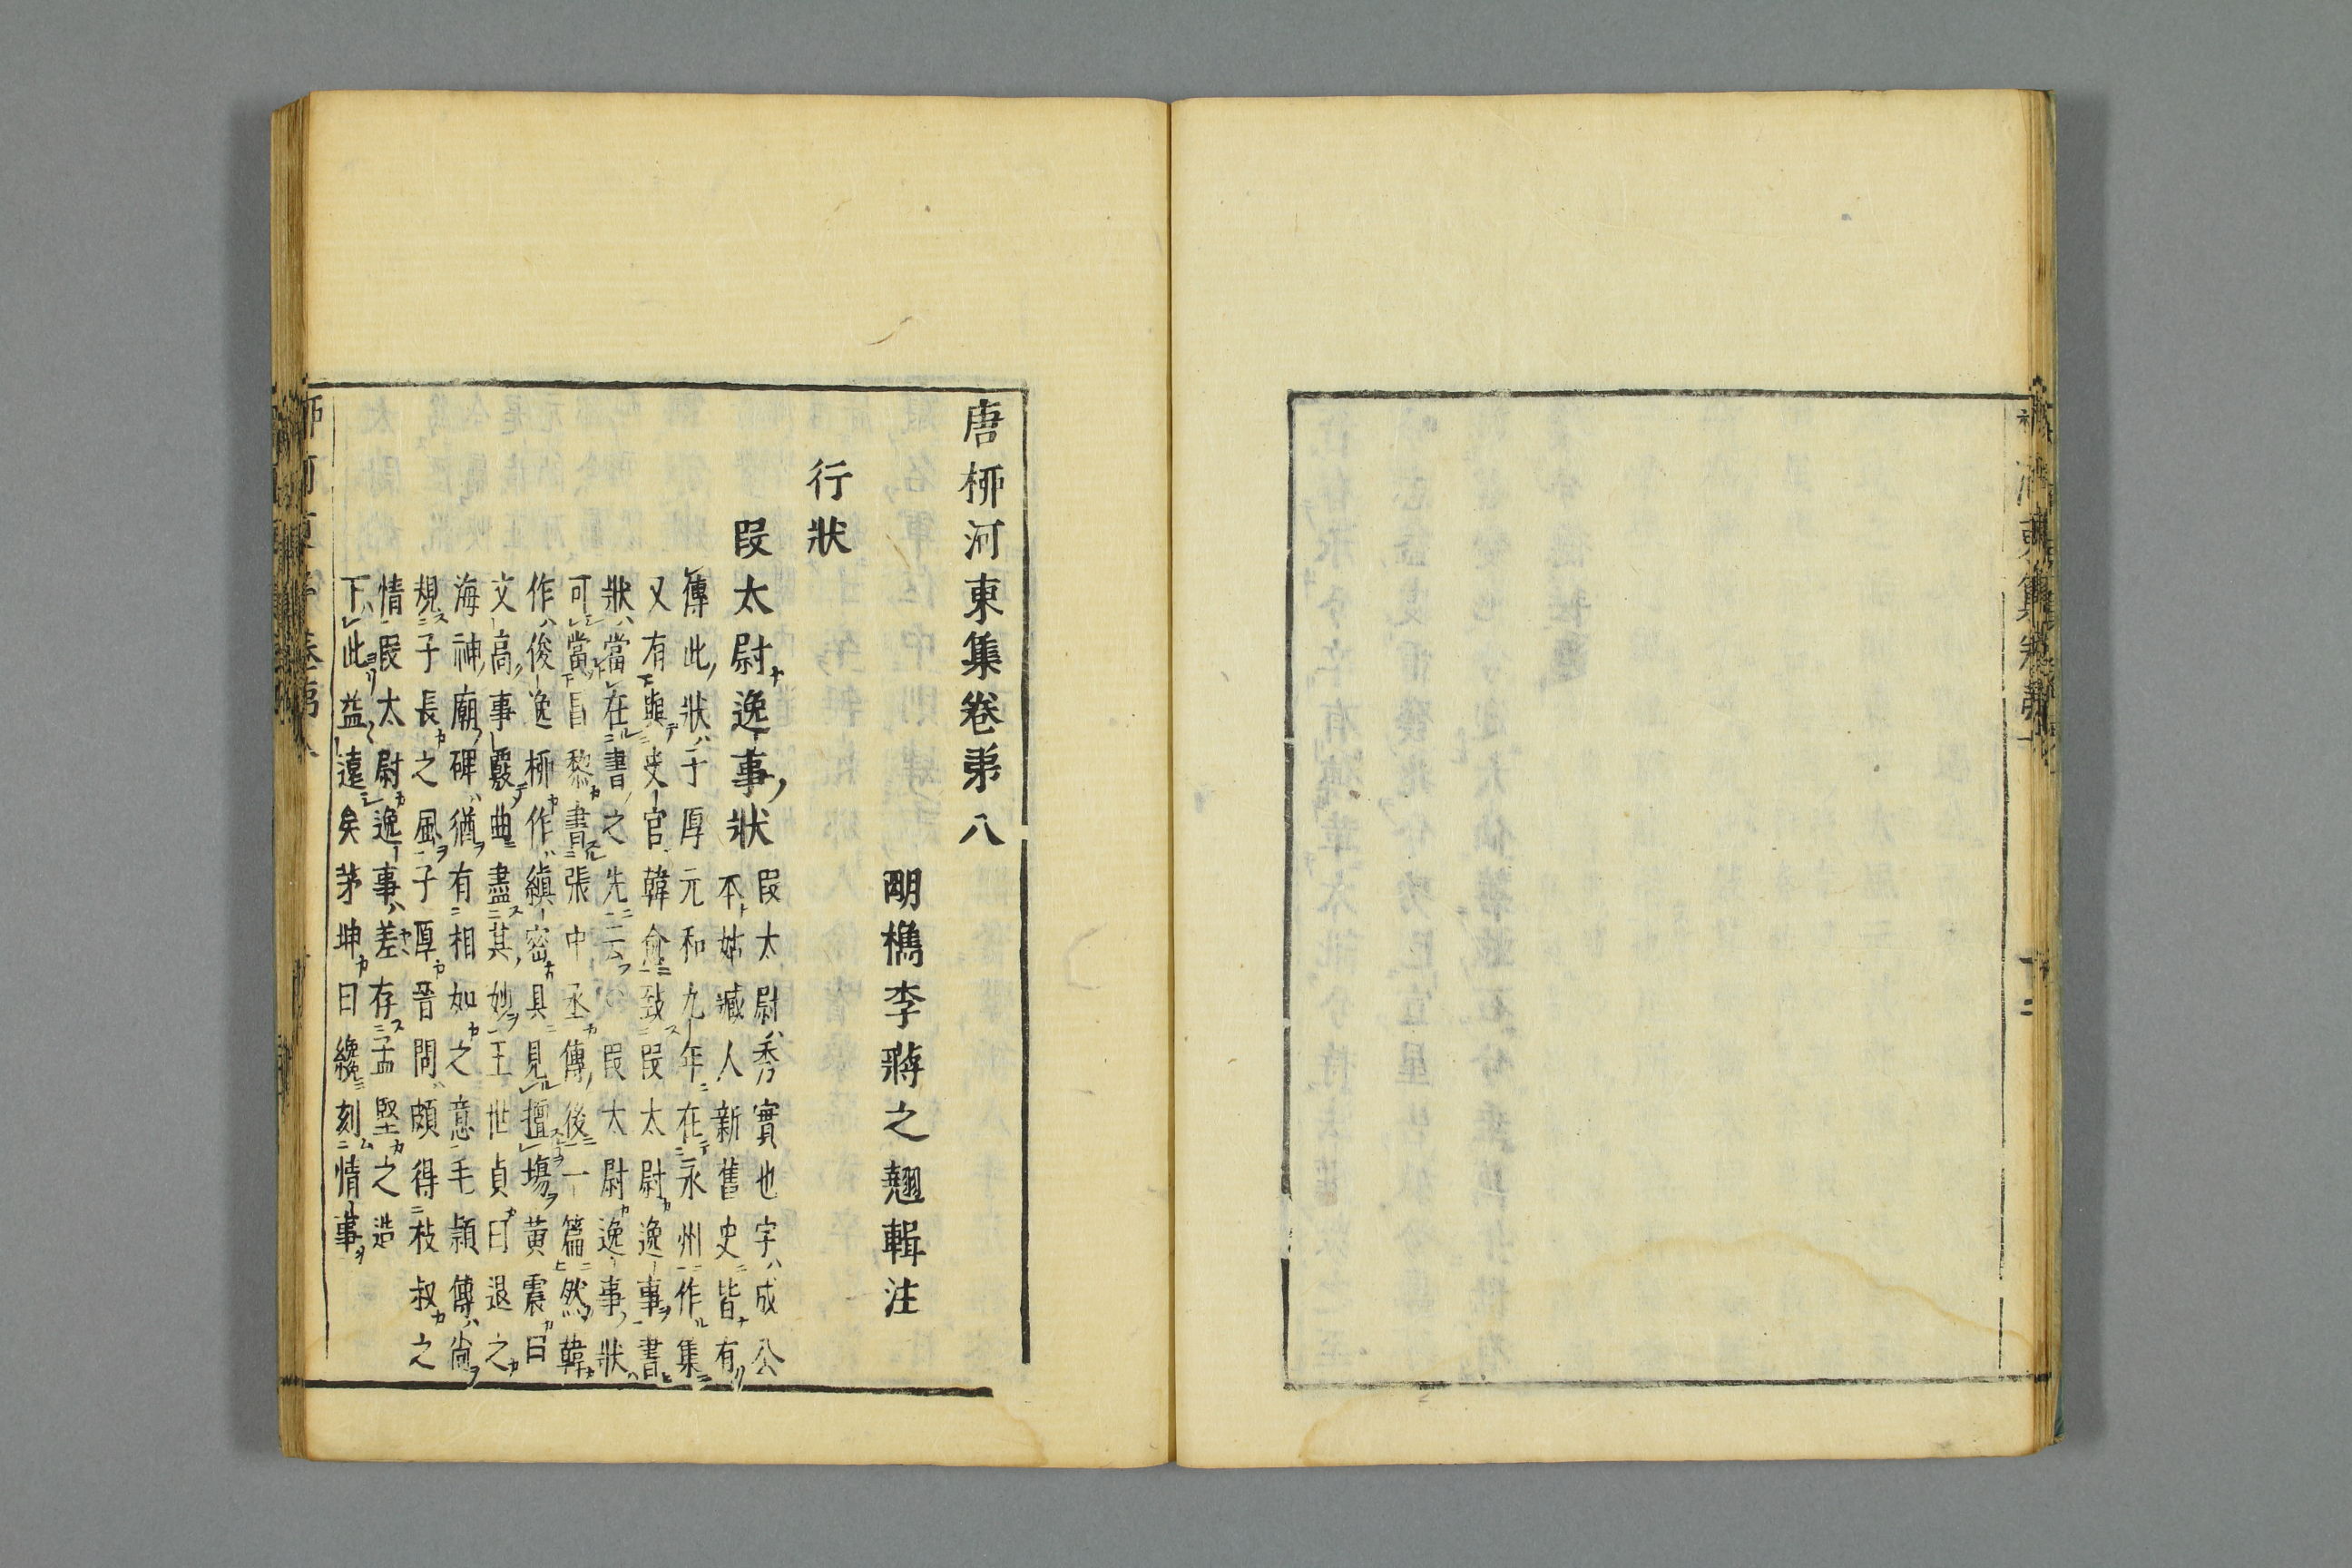 唐柳河東集卷弟八
明檇李蔣之翹輯注
行狀
段太尉逸事狀
段太尉秀實也字成公
本姑臧人新舊史皆有
傳此狀于厚元和九年在永州作集
又有與史官韓愈致段太尉逸事書
狀當在書之先云段太尉逸事狀
可當昌黎書張中丞傳後一篇然韓
作俊逸柳作縝密具見擅塲黄震曰
文高事覈曲盡其妙王世貞曰退之
海神廟碑猶有相如之意毛穎傳尚
規子長之風子厚晉問頗得枚叔之
情段太尉逸事差存孟堅之造
下此益遠矣茅坤曰纔刻情事